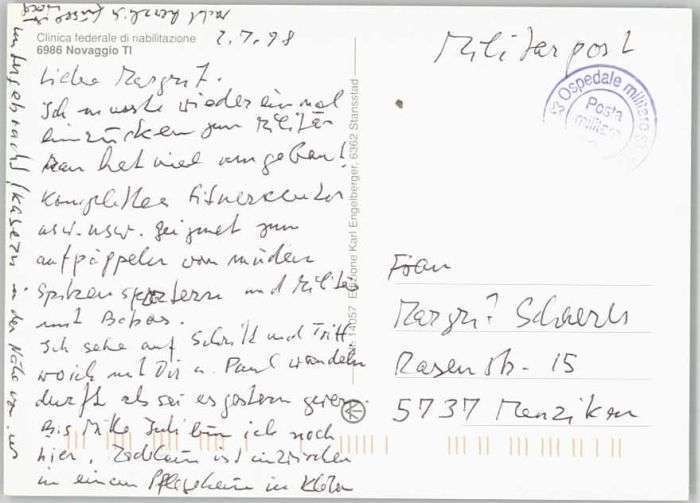 Clinica federale di riabilitazione
6986 Novaggio TI
2.7.98
Liebe Margrit.
Ich musste wieder einmal
einrücken zum Militär
Man hat viel umgeben!
Komplettes Fitnesscenter
usw. usw. geignet zum
aufpäppeln von müden
Spitzensportern und Militär
mit Bobos.
Ich sehe auf Schritt und Tritt
wo ich mit Dir u. Paul wandeln
durfte als sei es gestern gewesen.
Bis Mitte Juli bin ich noch
hier. ist inzwischen
in einem Pflegeheim in Kloten
untergebracht / Kasern in der Nähe von uns
recht herzlich
14057 Edizione Karl Engelberger, 6362 Stansstad
Militärpost
Ospedale militare
Posta
militare
Frau
Margrit
Rasenstr. 15
5737 Menziken